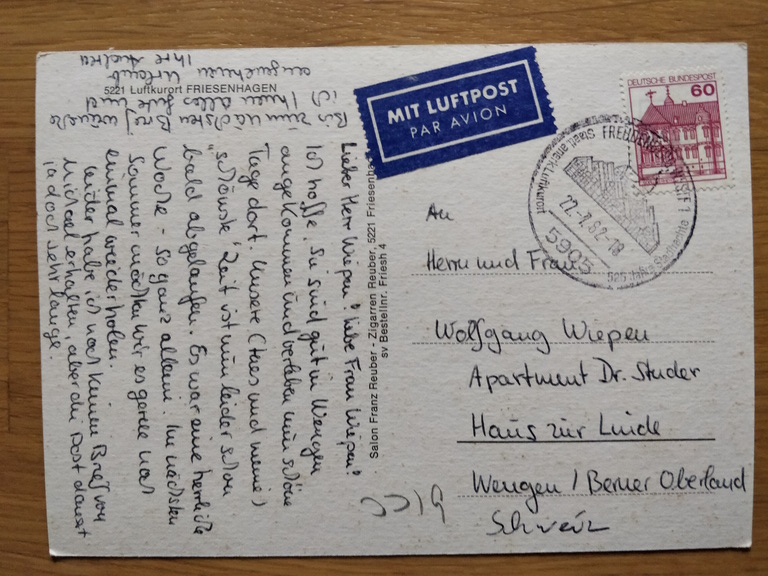 5221 Luftkurort FRIESENHAGEN
Lieber Herr Wiepen! Liebe Frau Wiepen!
Ich hoffe, Sie sind gut in Wengen
angekommen und verleben nun schöne
Tage dort. Unsere (Ines und meine)
"schönste" Zeit ist nun leider schon
bald abgelaufen. Es war eine herrliche
Woche - so ganz allein. Im nächsten
Sommer möchten wir es gerne noch
einmal wiederholen.
Leider habe ich noch keinen Brief von
Michael erhalten, aber die Post dauert
ja doch sehr lange.
Bis zum nächsten Brief wünsche
ich Ihnen alles Gute und
angenehmen Urlaub
Ihre
Salon Franz Reuber - Zigarren Reuber, 5221 Friesenha
sv Bestellnr. Friesh 4
MIT LUFTPOST
PAR AVION
DEUTSCHE BUNDESPOST
60
22.-7.82-18
5905
An
Herrn und Frau
Wolfgang Wiepen
Apartment Dr. Studer
Haus zur Linde
Wengen / Berner Oberland
Schweiz